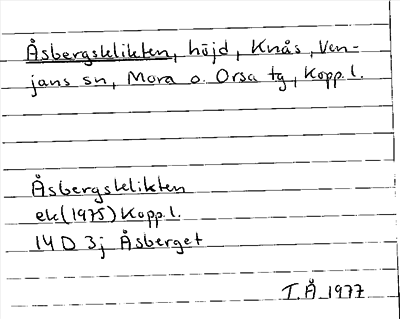 Åsbergsklikten, höjd, Knås, Ven-
jans sn, Mora o. Orsa tg, Kopp. l.
Åsbergsklikten
ek (1975) Kopp. l.
14 D 3j Åsberget
T. Å 1977